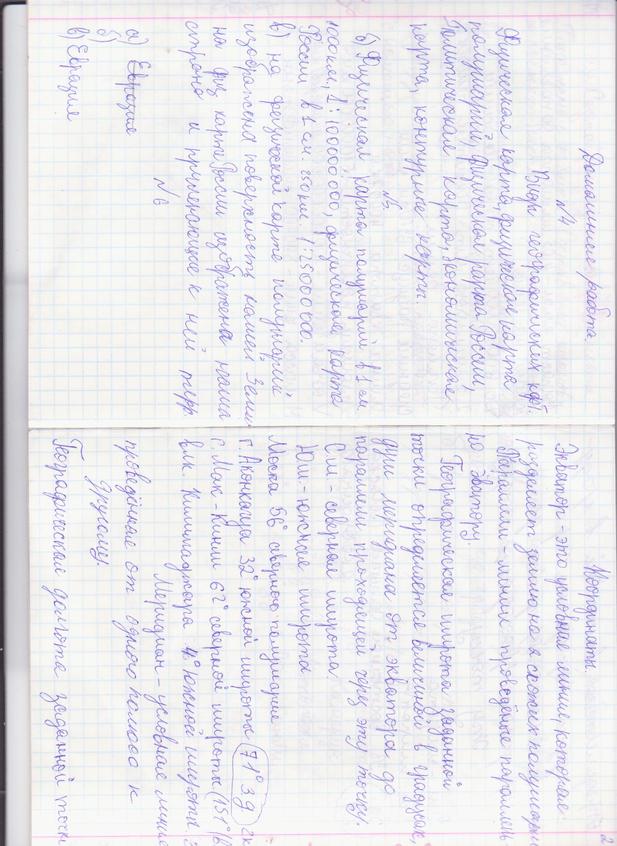 Домашнее работа.
№4
Виды географических карт.
Физическая карта, физическая карта
полушарий, физическая карта России,
Политическая карта, экономическая
карта, контурные карты.
№5
б) Физическая карта полушарий в 1 см
100 км, 1:10000000, физическая карта
России в 1 см. 250 км. 1:25000000.
в) на физической карте полушарий
изображена поверхность нашей Земли
на физ карте России изображена наша
страна и прилегающие к ней терр.
№6
а) Евразия
б)
в) Евразия
2
Координаты.
Экватор - это условные линия, которые
разделяет землю на 2 схожих полушария
Параллели - линии проведёные параллель
но экватору.
Географическая широта заданной
точки определяется величиной в градусах,
дуги меридиана от экватора до
параллели проходящей через эту точку.
С.ш - северная широта
Юш - южная широта
Моска 56° сверного полушария
г. Аконкагуа 32° южной широты 71° 3д
г. Мак-Кинли 62° сверной широты (151°
влк Килиманджара 4° южной широты.
Меридиан - условные линие
проведённые от одного полюса к
другому.
Географической долгота заданной точки